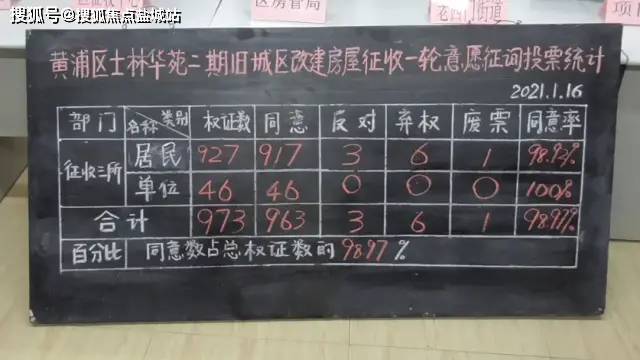 搜狐号@搜狐焦点盐城站
区房管局
老西门街道
黄浦区士林华苑二期旧城区改建房屋征收一轮意愿征询投票统计
2021.1.16
部门 名称 类别 权证数 同意 反对 弃权 废票 同意率
征收三所 居民 927 917 3 6 1 98.92%
单位 46 46 0 0 0 100%
合计 973 963 3 6 1 98.97%
百分比 同意数占总权证数的98.97%